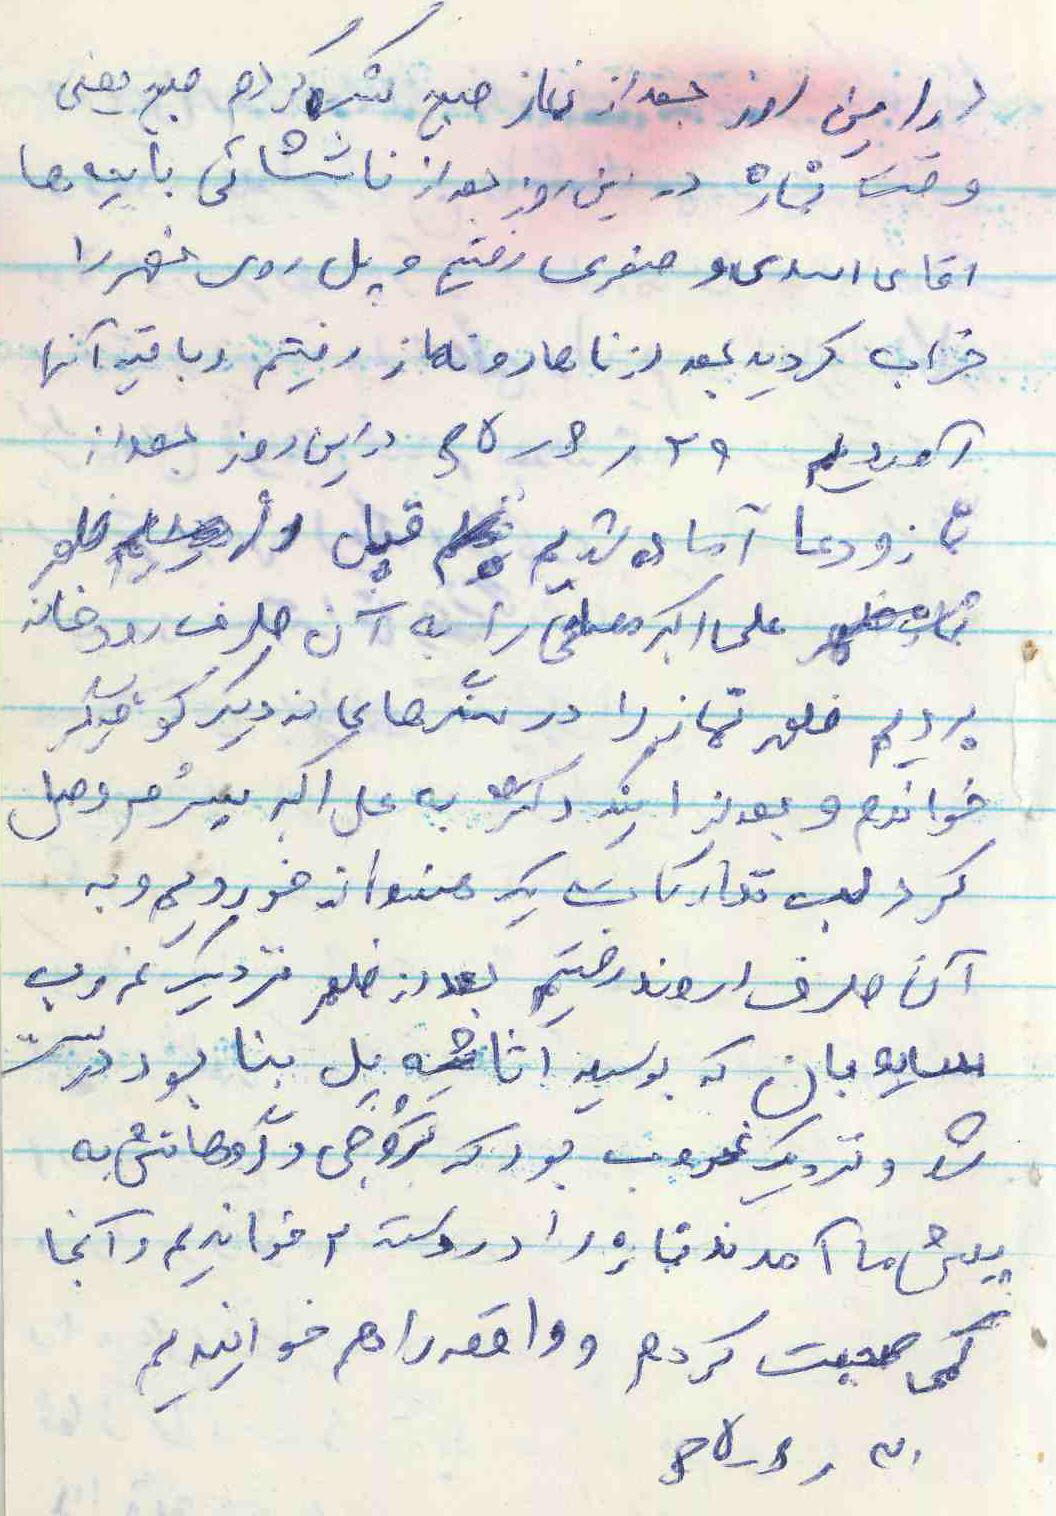 در این روز بعد از نماز صبح شکر کردم صبح یعنی
وقت نماز در این روز بعد از ناششائی با بچه ها
اقای اسدی و صفری رفتیم و پل روی نهر را
خراب کردیم بعد از ناهار و نماز رفیتم و با قیه آنها
آمدیم ۲۹ ر
در این روز بعد از
نماز و دعا آماده شدیم قبل از
علی اکبر را به آن طرف رودخانه
بردیم ظهر نماز را در سنگرهای نزدیک
خواندم و بعد از اینکه دکتر به علی اکبر سِرُم وصل
کرد لب تدارکات یک هندوانه خوردیم و به
آن طرف اروند رفتیم بعد از ظهر نزدیک غروب
سایه بان که بوسیله پل بنا بود درست
شد و نزدیک غروب بود که و به
پیش ما آمدند نماز را در دسته ۲ خواندیم و آنجا
کمی صحبت کردم و واقعه را هم خواندیم
۳۰ ر